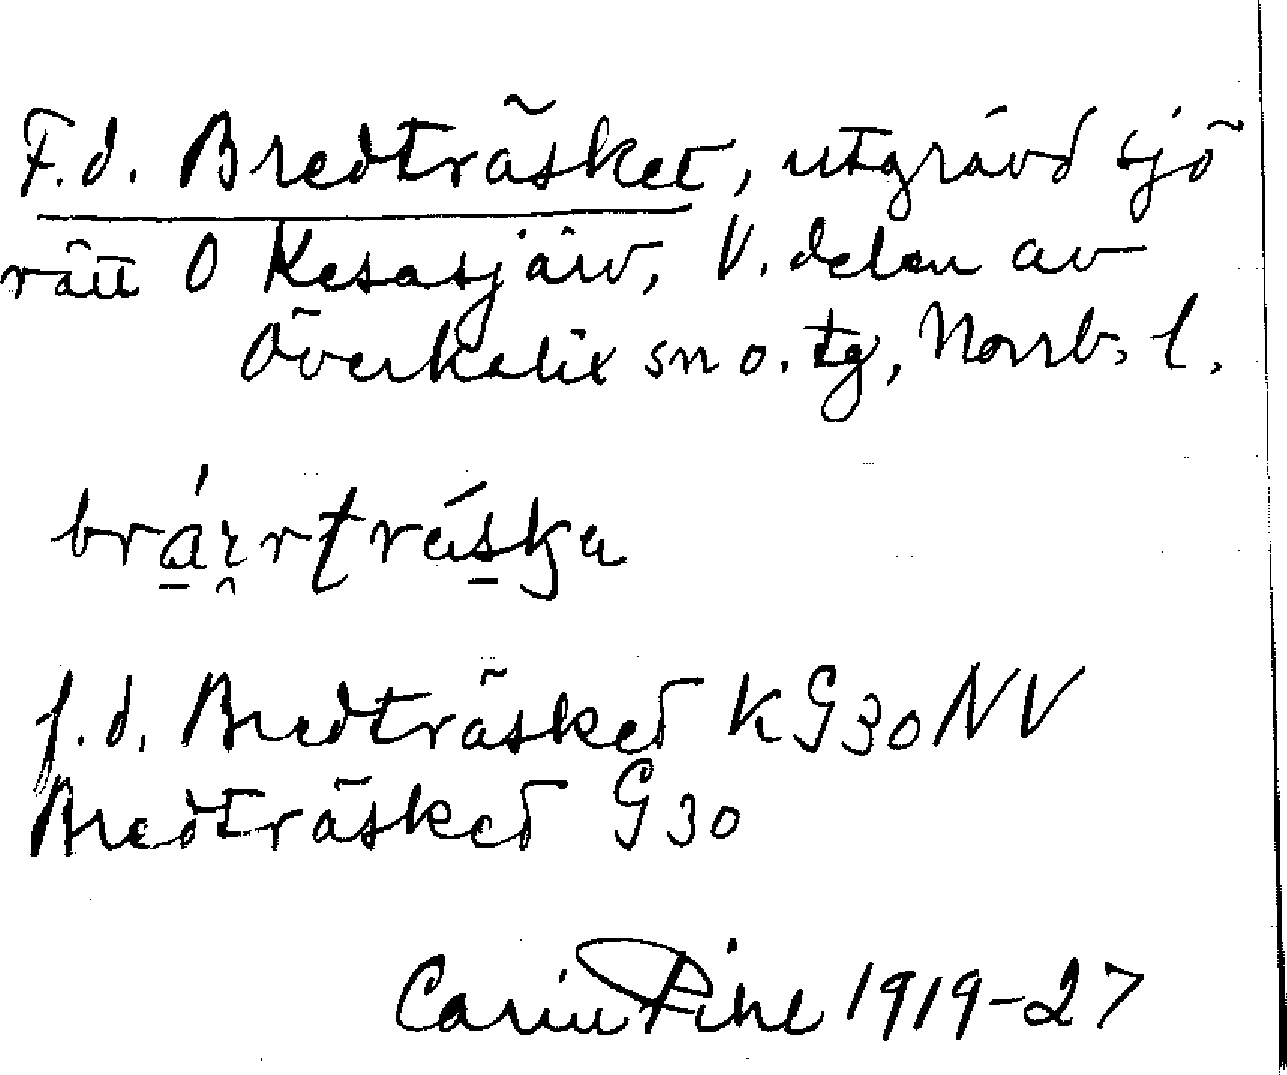 F.d. Bredträsket, utgrävd sjö
rätt O Kesasjärv, V. delen av
Överkalix sn o. tg, Norrb. l.
f.d. Bredträsket KG30NV
Bredträsket G30
Carin Pihl 1919-27